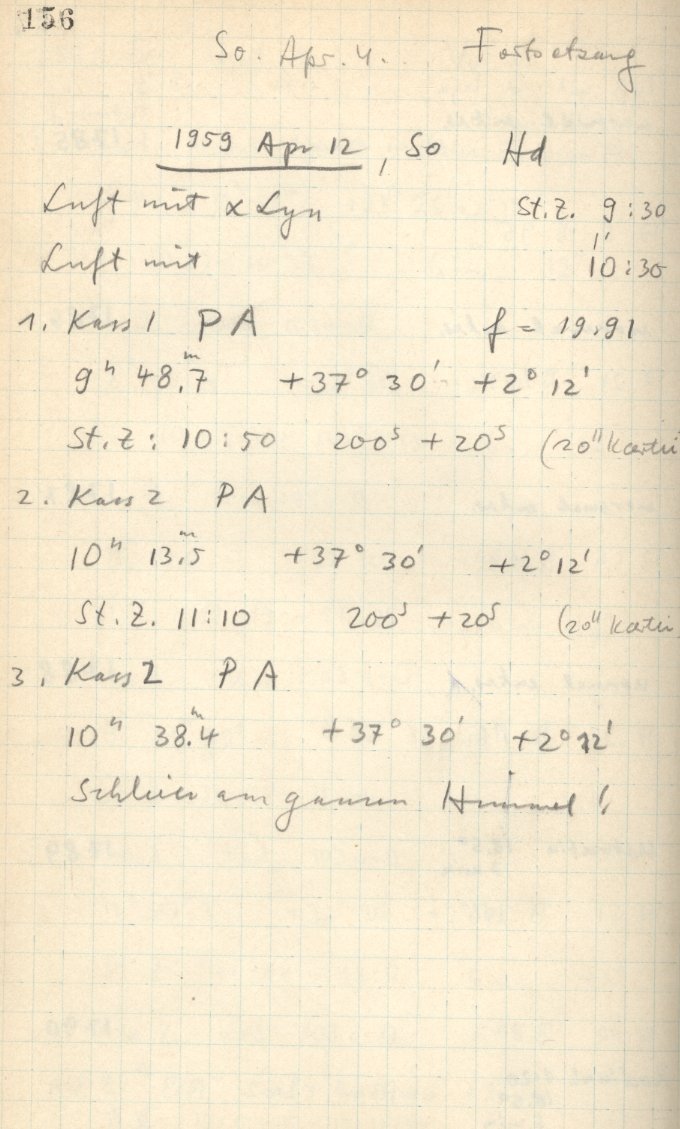 156
So. Apr. 4. Fortsetzung
1959 Apr 12, So Hd
Luft mit α Lyn St.Z. 9:30
Luft mit 10:30
1. Kass 1 PA f = 19.91
9ʰ 48ᵐ.7 +37° 30' +2° 12'
St.Z: 10:50 200ˢ + 20ˢ (20"
2. Kass 2 PA
10ʰ 13ᵐ.5 +37° 30' +2° 12'
St.Z. 11:10 200ˢ + 20ˢ (20"
3. Kass 2 PA
10ʰ 38ᵐ.4 +37° 30' +2° 12'
Schleier am ganzen Himmel!